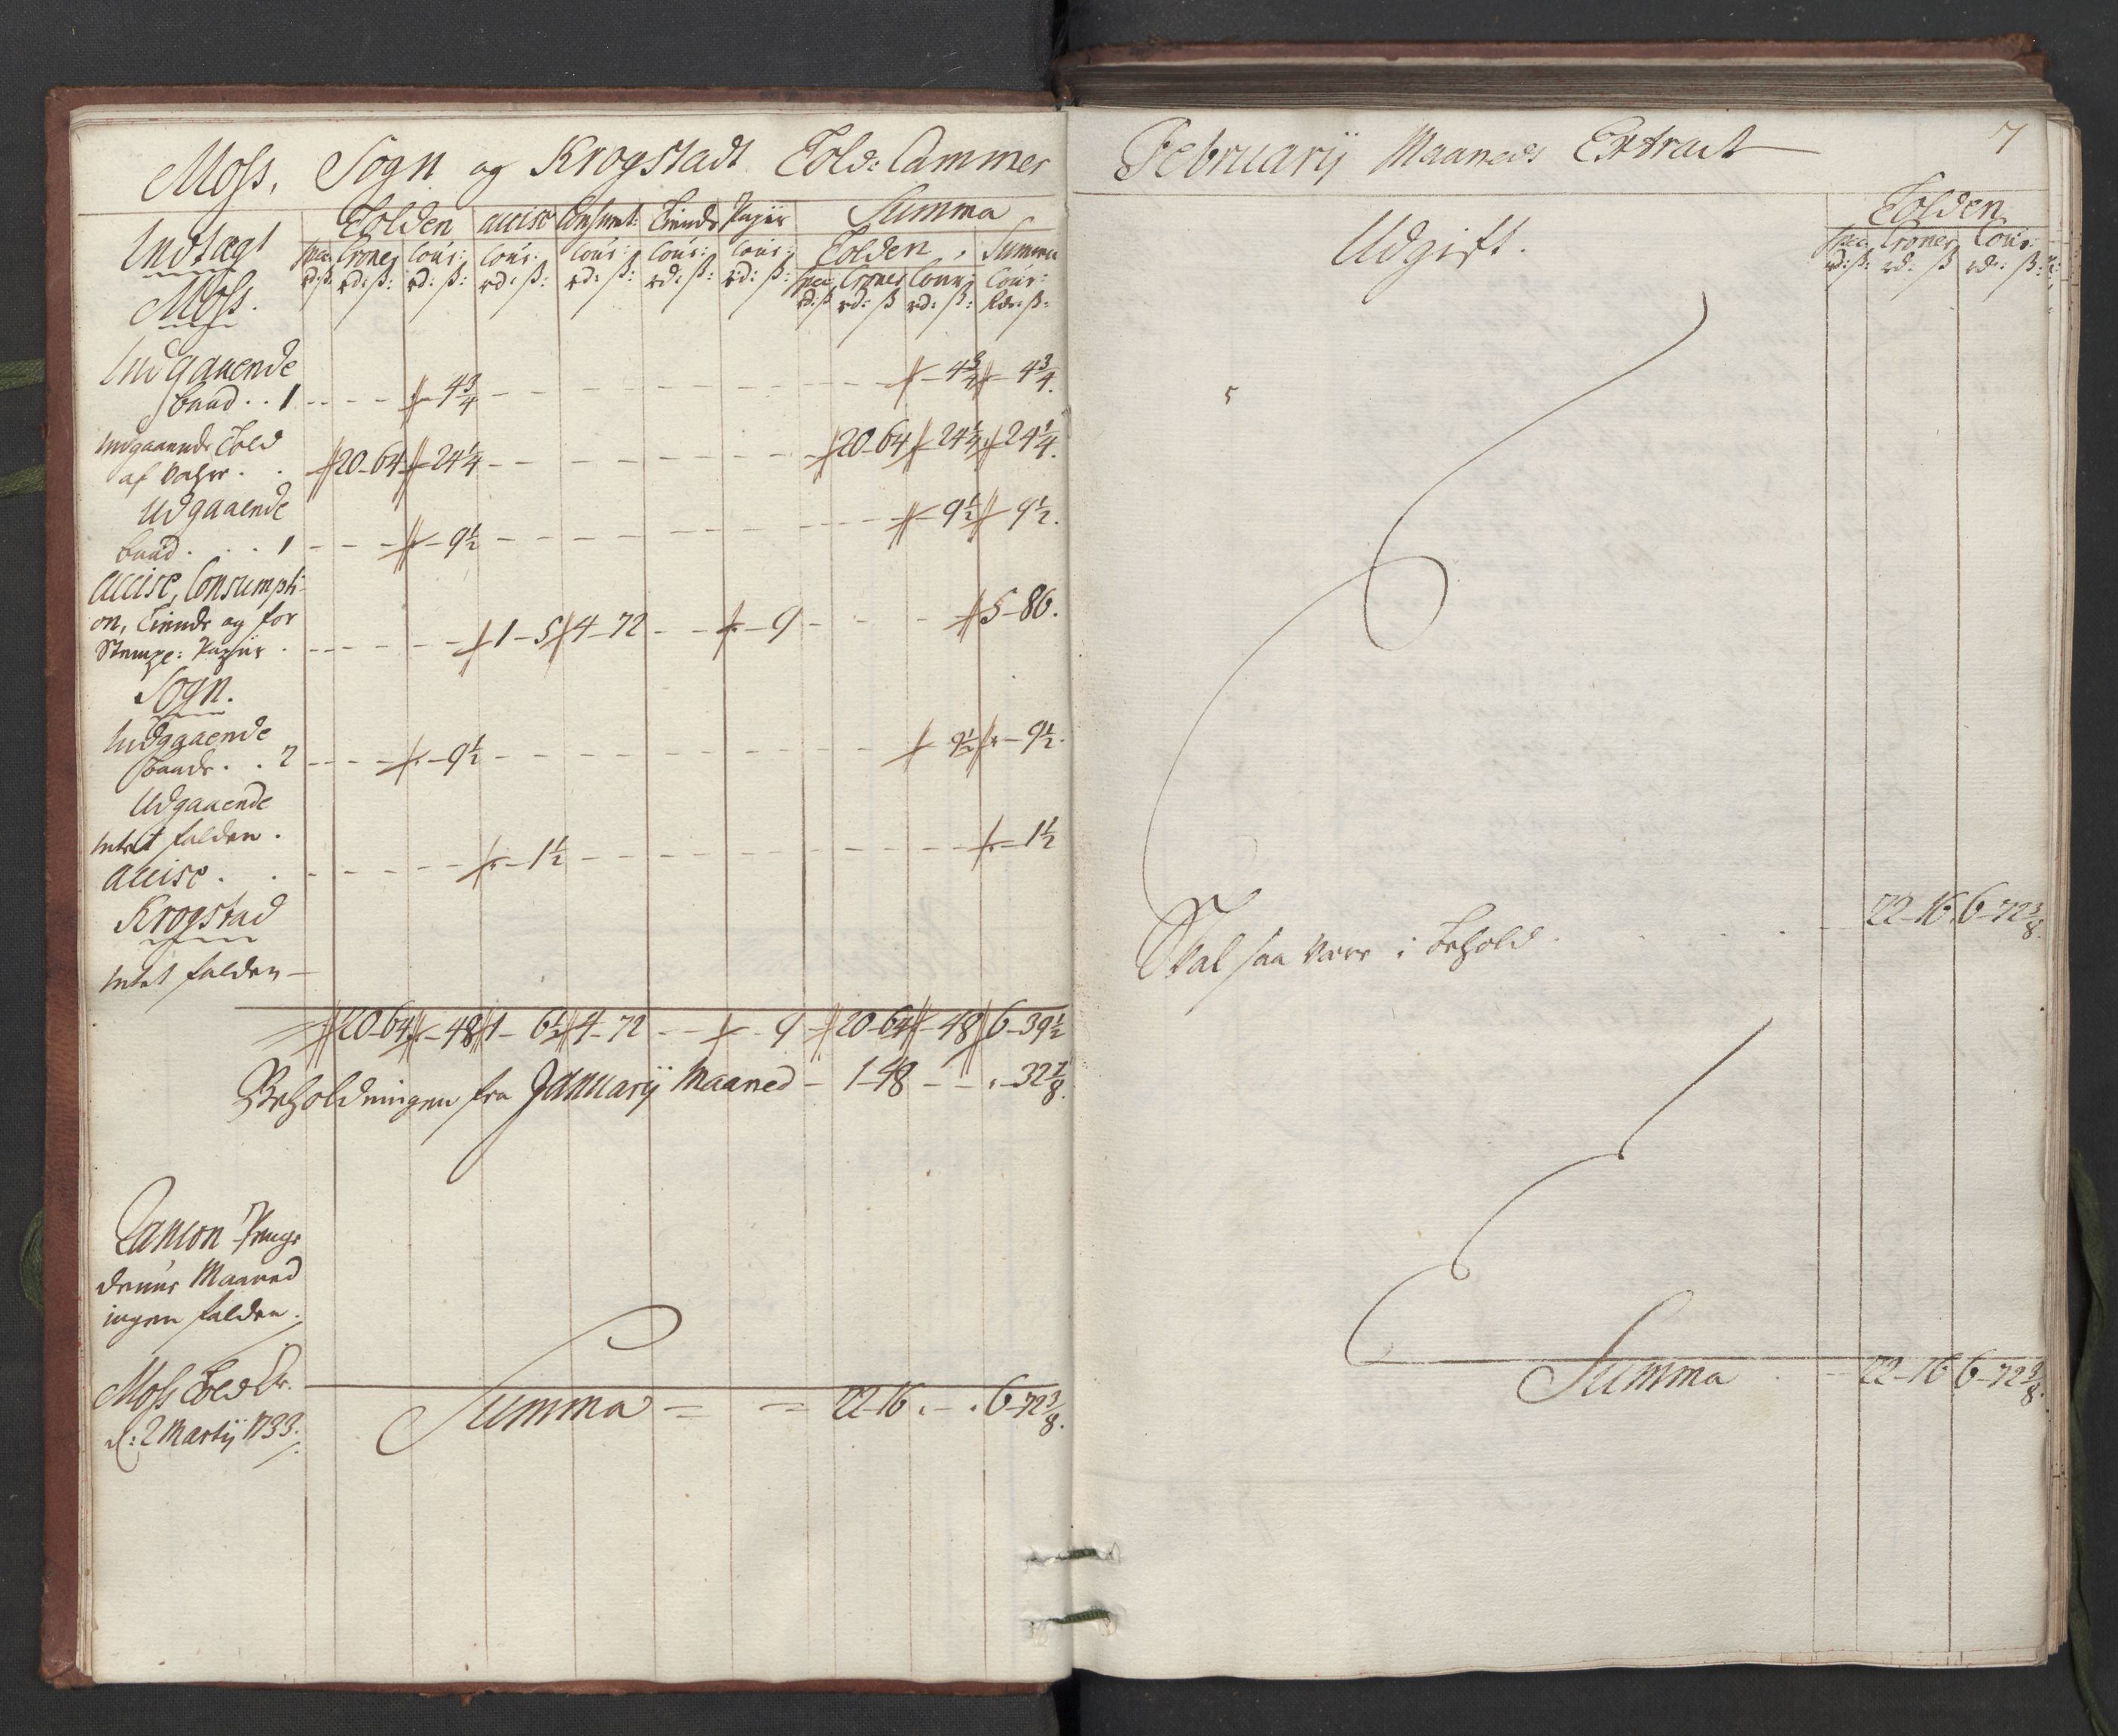 Moss, Sogn og Krogstadt Told: Cammer
Indtægt Tolden accise Consumt: Tiende Papiir Summa
Tolden, Summa
Spec: Croner Cour: Cour: Cour: Cour: Cour: Spec: Croner Cour: Cour:
rd: ß: rd: ß: rd: ß: rd: ß: rd: ß: rd: ß: rd: ß: rd: ß rd: ß rd: ß: Rdr: ß:
Moss.
Indgaaende
baad . . 1 - - - - 4 3/4 - - - - 4 3/4 - 4 3/4.
Indgaaende Told
af Vahre . . 20 - 64 - 24 1/4 - - - 20 - 64 - 24 1/4 - 24 1/4.
Udgaaende
baad . . . 1 - - - - 9 1/2 - - - - 9 1/2 - 9 1/2.
accise, Consumpti-
on, Tiende og for
Stempl: Papiir . - - - 1 - 5 4 - 72 - - - 9 - - - 5 - 86.
Sogn.
Indgaaende
baade . . 2 - - - - 9 1/2 - - - - 9 1/2 - 9 1/2.
Udgaaende
intet falden .
accise . . - - - - 1 1/2 - - - - 1 1/2
Krogstad
intet falden -
20 - 64 - 48 1 - 6 1/2 4 - 72 - - - 9 - 20 - 64 - 48 6 - 39 1/2
Beholdningen fra Januarij Maaned - 1 - 48 - - - 32 7/8.
Rancon Penge
denne Maaned
ingen falden.
Moss Told Cr.
d: 2 Martij 1733.
Summa = = 22 - 16 . - . 6 - 72 3/8.
Februarij Maaneds Extract
7
Udgift.
Tolden
Spec: Croner Cour:
rd: ß: rd: ß rdr: ß:
Skal saa være i behold . . . . - 22 - 16 . 6 - 72 3/8.
Summa . - 22 - 16 6 - 72 3/8.